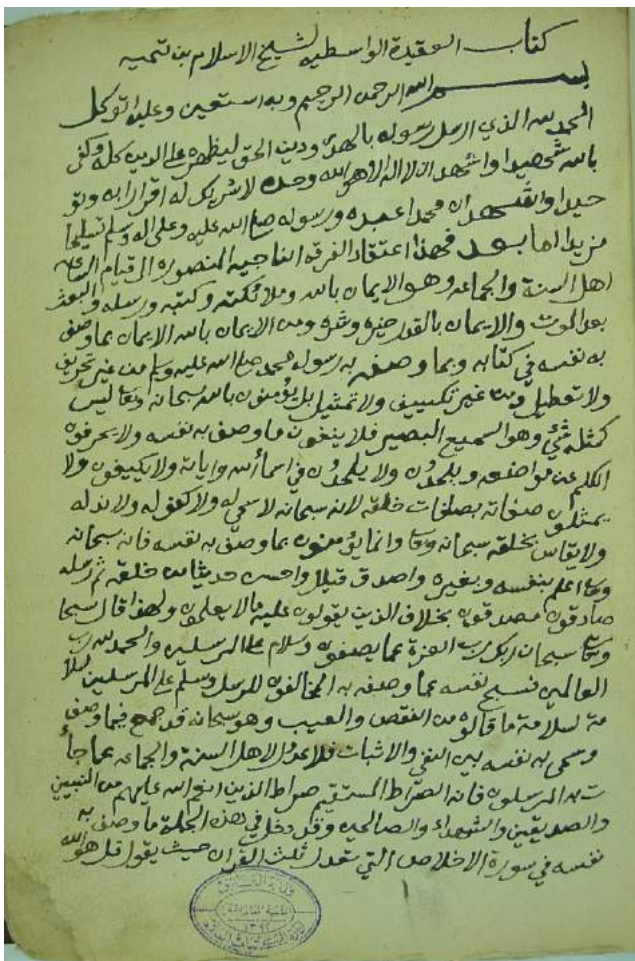 كتاب العقيدة الواسطيه لشيخ الاسلام بن تيميه
بسم الله الرحمن الرحيم وبه استعين وعليه اتوكل
الحمد لله الذي ارسل رسوله بالهدى ودين الحق ليظهره على الدين كله وكفى
بالله شهيدا واشهد ان لا اله الا هو الله وحده لا شريك له اقرارا به وتو
حيدا واشهد ان محمدا عبده ورسوله صلى الله عليه وعلى اله وسلم تسليما
مزيدا اما بعد فهذا اعتقاد الفرقه الناجيه المنصوره الى قيام الساعه
اهل السنة والجماعه وهو الايمان بالله وملائكته وكتبه ورسله والبعث
بعد الموت والايمان بالقدر خيره وشره ومن الايمان بالله الايمان بما وصف
به نفسه في كتابه وبما وصفه به رسوله محمد صلى الله عليه وسلم من غير تحريف
ولا تعطيل ومن غير تكييف ولا تمثيل بل يؤمنون بالله سبحانه وتعا ليس
كمثله شيء وهو السميع البصير فلا ينفون ما وصف به نفسه ولا يحرفون
الكلم عن مواضعه ويلحدون ولا يلحدون في اسماء الله واياته ولا يكيفون ولا
يمثلون صفاته بصفات خلقه لانه سبحانه لا سمي له ولا كفو له ولا ند له
ولا يقاس بخلقه سبحانه وتعا وانما يؤمنون بما وصف به نفسه فانه سبحانه
وتعا اعلم بنفسه وبغيره واصدق قيلا واحسن حديثا من خلقه ثم رسله
صادقون مصدقون بخلاف الذين يقولون عليه مالا يعلمون ولهذا قال سبحا
وتعا سبحان ربك رب العزة عما يصفون وسلام على المرسلين والحمد لله رب
العالمين فسبح نفسه عما وصفه به المخالفون للرسل وسلم على المرسلين لسلا
مة لسلامة ما قالوه من النقص والعيب وهو سبحانه قد جمع فيما وصف
وسمى به نفسه بين النفي والاثبات فلا عدول لاهل السنة والجماعه عما جأ
ت به المرسلون فانه الصراط المستقيم صراط الذين انعم الله عليهم من النبيين
والصديقين والشهداء والصالحين وقد دخل في هذه الجملة ما وصف به
نفسه في سورة الاخلاص التي تعدل ثلث القران حيث يقول قل هو الله